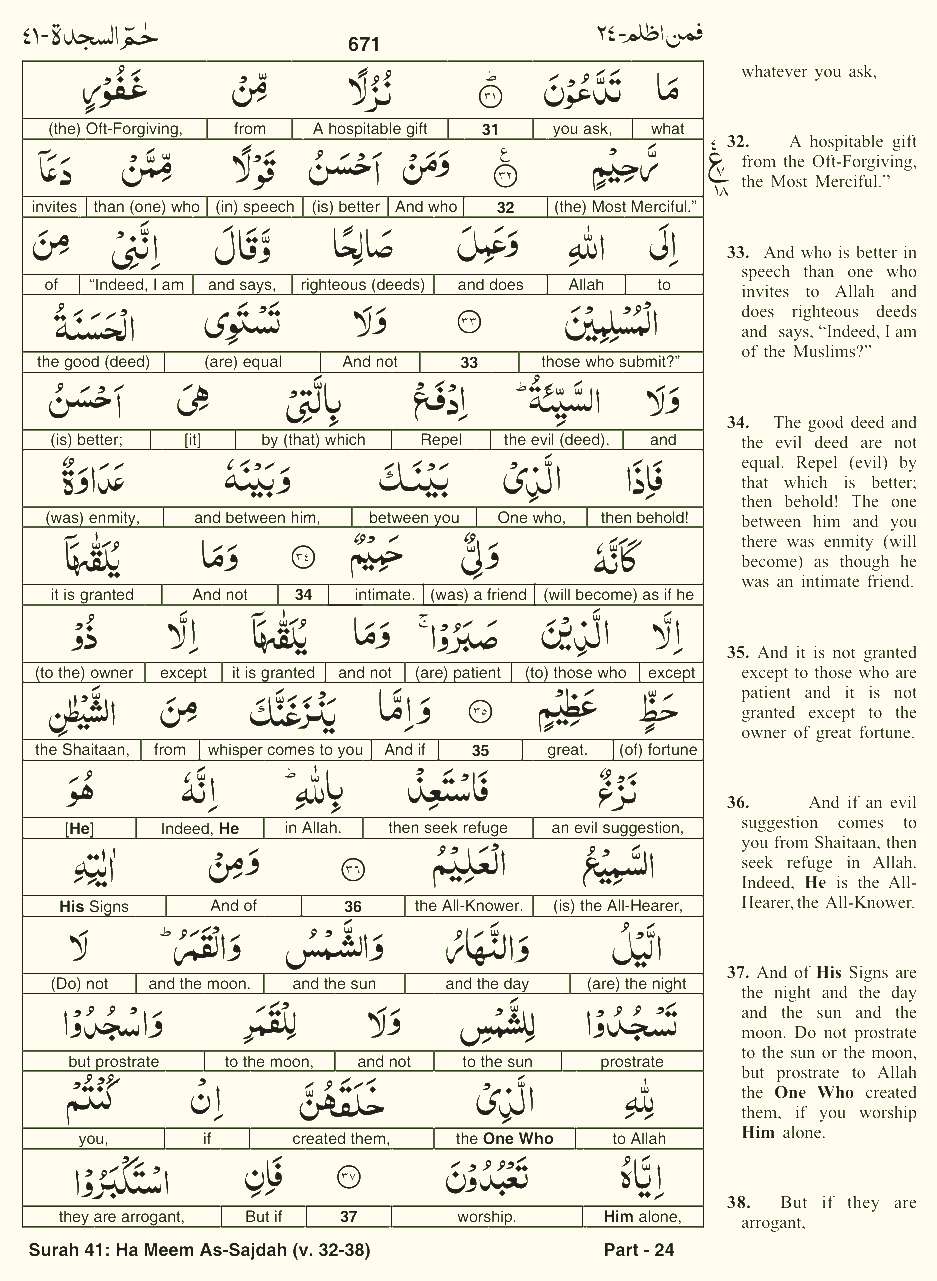 حٰمٓ السجدة-٤١
671
فمن اظلم-٢٤
مَا تَدَّعُوْنَ ۳۱ نُزُلًا مِّنْ غَفُوْرٍ
what | you ask, | 31 | A hospitable gift | from | (the) Oft-Forgiving,
رَّحِيْمٍ ۳۲ وَمَنْ اَحْسَنُ قَوْلًا مِّمَّنْ دَعَآ
(the) Most Merciful.” | 32 | And who | (is) better | (in) speech | than (one) who | invites
اِلَى اللّٰهِ وَعَمِلَ صَالِحًا وَّقَالَ اِنَّنِيْ مِنَ
to | Allah | and does | righteous (deeds) | and says, | “Indeed, I am | of
الْمُسْلِمِيْنَ ۳۳ وَلَا تَسْتَوِى الْحَسَنَةُ
those who submit?” | 33 | And not | (are) equal | the good (deed)
وَلَا السَّيِّئَةُ ؕ اِدْفَعْ بِالَّتِيْ هِىَ اَحْسَنُ
and | the evil (deed). | Repel | by (that) which | [it] | (is) better;
فَاِذَا الَّذِىْ بَيْنَكَ وَبَيْنَهٗ عَدَاوَةٌ
then behold! | One who, | between you | and between him, | (was) enmity,
كَاَنَّهٗ وَلِىٌّ حَمِيْمٌ ۳٤ وَمَا يُلَقّٰىهَآ
(will become) as if he | (was) a friend | intimate. | 34 | And not | it is granted
اِلَّا الَّذِيْنَ صَبَرُوْا ۚ وَمَا يُلَقّٰىهَآ اِلَّا ذُوْ
except | (to) those who | (are) patient | and not | it is granted | except | (to the) owner
حَظٍّ عَظِيْمٍ ۳۵ وَاِمَّا يَنْزَغَنَّكَ مِنَ الشَّيْطٰنِ
(of) fortune | great. | 35 | And if | whisper comes to you | from | the Shaitaan,
نَزْغٌ فَاسْتَعِذْ بِاللّٰهِ ؕ اِنَّهٗ هُوَ
an evil suggestion, | then seek refuge | in Allah. | Indeed, He | [He]
السَّمِيْعُ الْعَلِيْمُ ۳٦ وَمِنْ اٰيٰتِهِ
(is) the All-Hearer, | the All-Knower. | 36 | And of | His Signs
الَّيْلُ وَالنَّهَارُ وَالشَّمْسُ وَالْقَمَرُ ؕ لَا
(are) the night | and the day | and the sun | and the moon. | (Do) not
تَسْجُدُوْا لِلشَّمْسِ وَلَا لِلْقَمَرِ وَاسْجُدُوْا
prostrate | to the sun | and not | to the moon, | but prostrate
لِلّٰهِ الَّذِىْ خَلَقَهُنَّ اِنْ كُنْتُمْ
to Allah | the One Who | created them, | if | you,
اِيَّاهُ تَعْبُدُوْنَ ۳۷ فَاِنِ اسْتَكْبَرُوْا
Him alone, | worship. | 37 | But if | they are arrogant,
٤
ع
٧
١٨
whatever you ask,
32. A hospitable gift
from the Oft-Forgiving,
the Most Merciful.”
33. And who is better in
speech than one who
invites to Allah and
does righteous deeds
and says, “Indeed, I am
of the Muslims?”
34. The good deed and
the evil deed are not
equal. Repel (evil) by
that which is better;
then behold! The one
between him and you
there was enmity (will
become) as though he
was an intimate friend.
35. And it is not granted
except to those who are
patient and it is not
granted except to the
owner of great fortune.
36. And if an evil
suggestion comes to
you from Shaitaan, then
seek refuge in Allah.
Indeed, He is the All-
Hearer, the All-Knower.
37. And of His Signs are
the night and the day
and the sun and the
moon. Do not prostrate
to the sun or the moon,
but prostrate to Allah
the One Who created
them, if you worship
Him alone.
38. But if they are
arrogant,
Surah 41: Ha Meem As-Sajdah (v. 32-38)
Part - 24